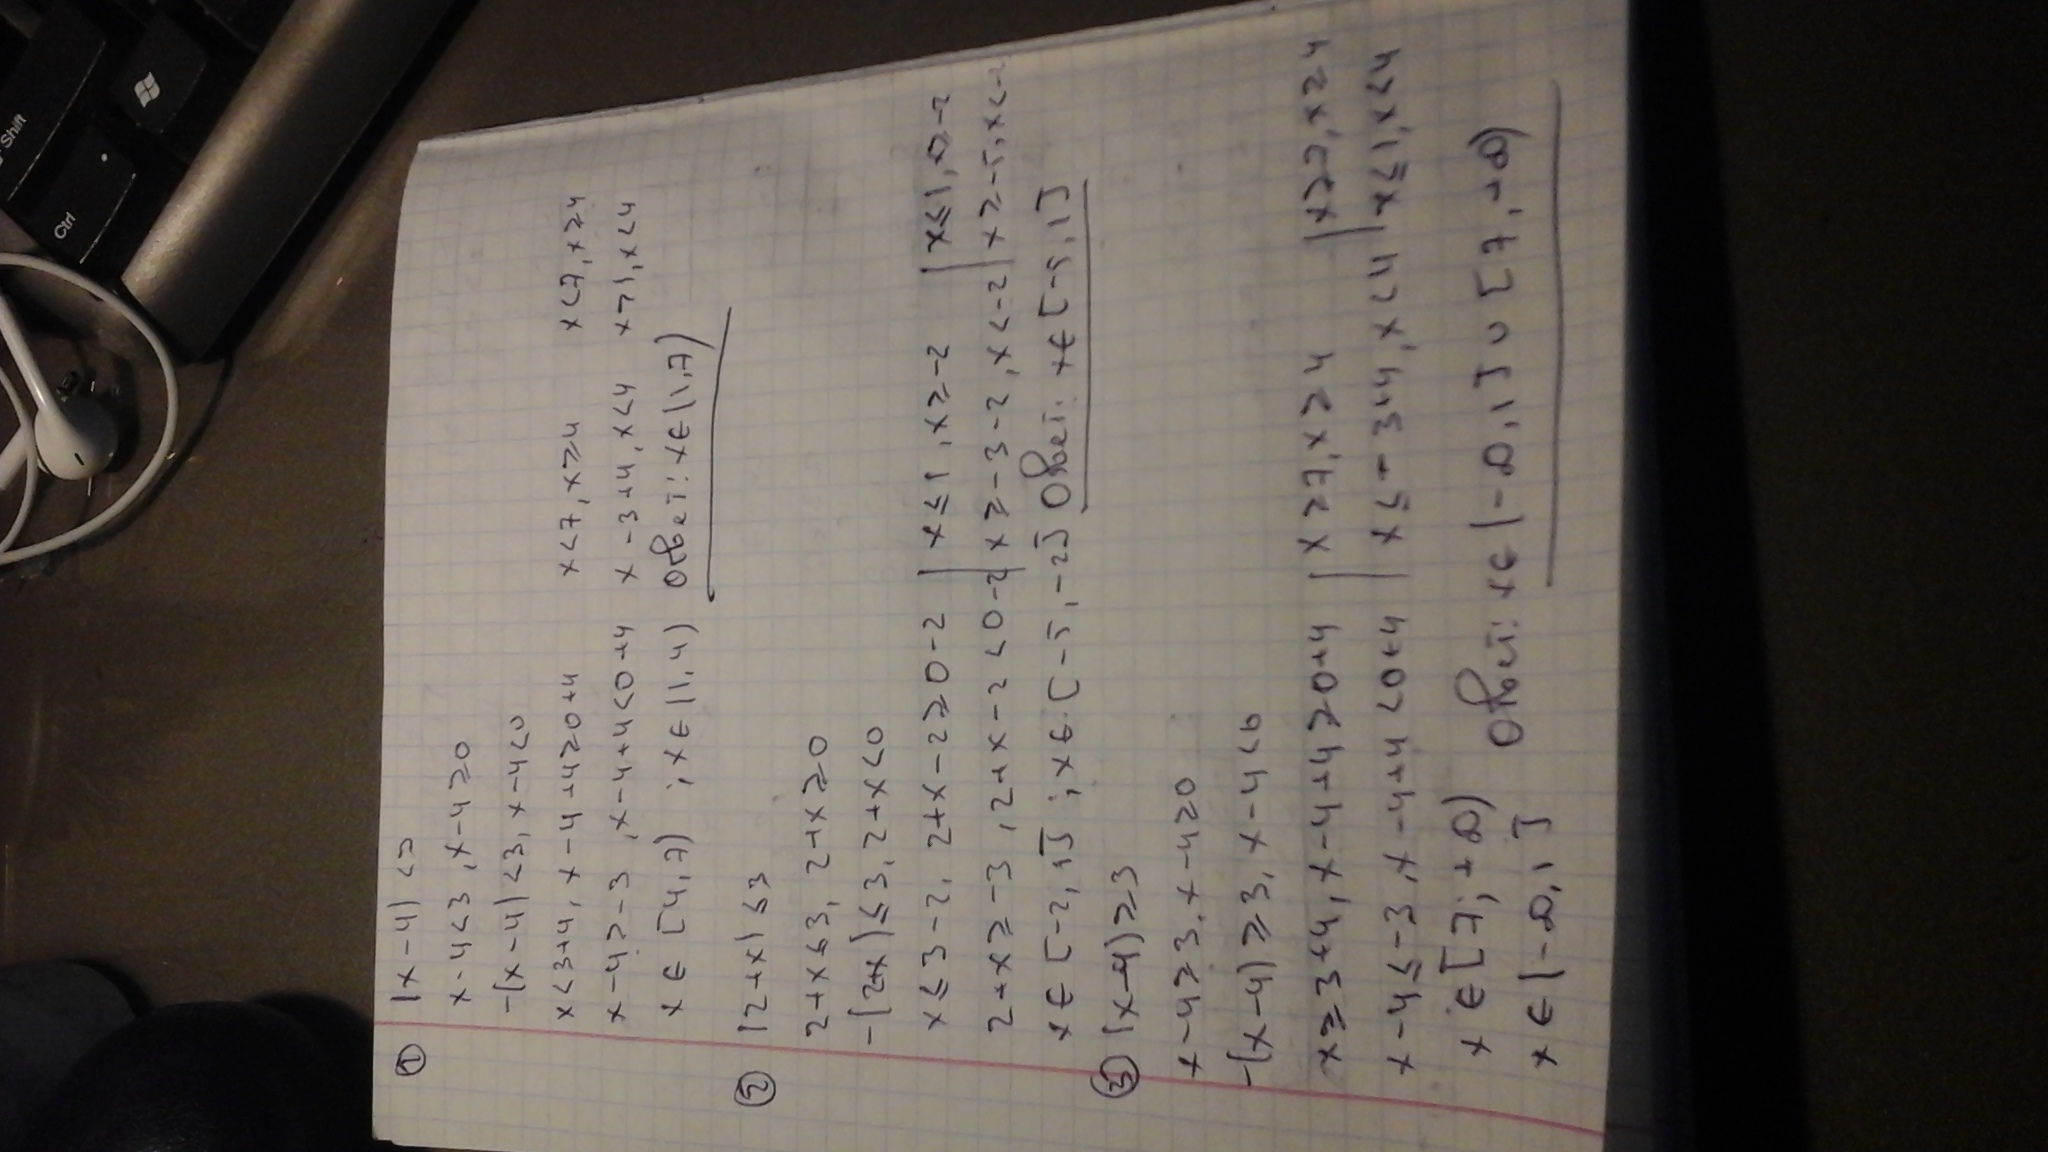 ① |x-4|<3
x-4<3, x-4≥0
-(x-4)<3, x-4<0
x<3+4, x-4+4≥0+4 x<7, x≥4 x<7, x≥4
x-4>-3, x-4+4<0+4 x-3+4, x<4 x>1, x<4
x∈[4,7) ; x∈(1,4) Ответ: x∈(1,7)
② |2+x|≤3
2+x≤3, 2+x≥0
-(2+x)≤3, 2+x<0
x≤3-2, 2+x-2≥0-2 | x≤1, x≥-2 | x≤1, x≥-2
2+x≥-3, 2+x-2<0-2 | x≥-3-2, x<-2 | x≥-5, x<-2
x∈[-2,1] ; x∈[-5,-2] Ответ: x∈[-5,1]
③ |x-4|≥3
x-4≥3, x-4≥0
-(x-4)≥3, x-4<0
x≥3+4, x-4+4≥0+4 | x≥7, x≥4 | x≥7, x≥4
x-4≤-3, x-4+4<0+4 | x≤-3+4, x<4 | x≤1, x<4
x∈[7;+∞) Ответ: x∈(-∞,1]∪[7,-∞)
x∈(-∞,1]
Shift
Ctrl